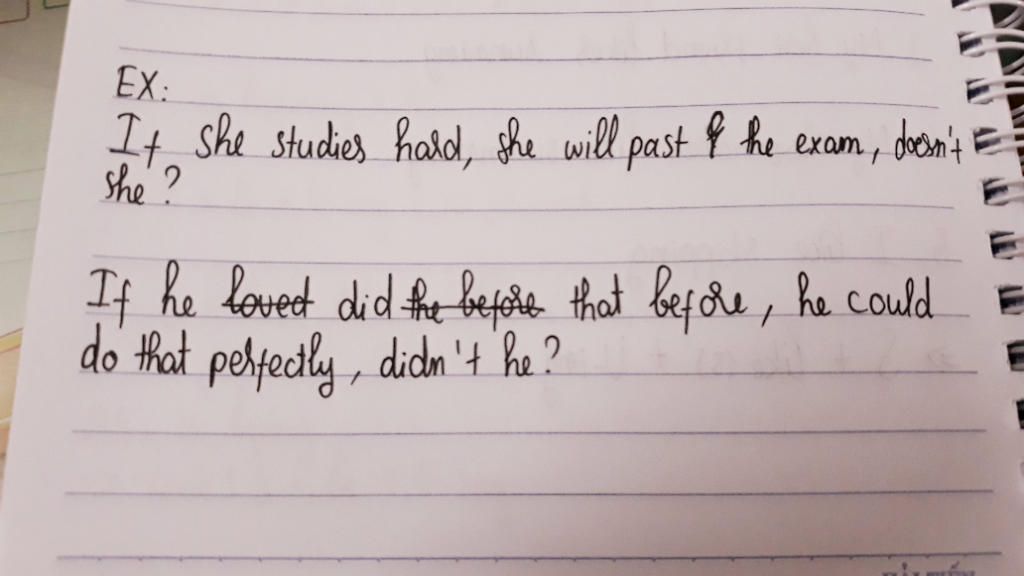 EX:
If she studies hard, she will past the exam, doesn't
she?
If he loved did the before that before, he could
do that perfectly, didn't he?